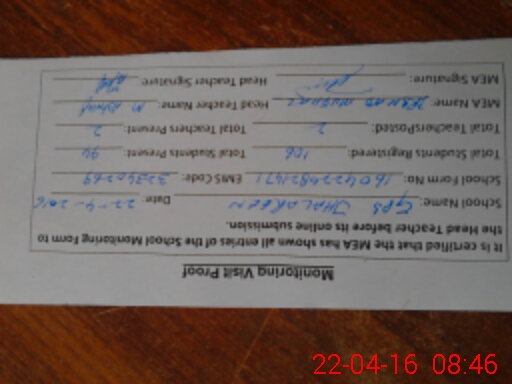 Monitoring Visit Proof
It is certified that the MEA has shown all entries of the School Monitoring Form to
the Head Teacher before its online submission.
School Name: GPS JHALAREEN Date: 22-4-2016
School Form No: EMIS Code:
Total Students Registered: 106 Total Students Present: 94
Total TeachersPosted: 2 Total Teachers Present: 2
MEA Name: Head Teacher Name:
MEA Signature: Head Teacher Signature:
22-04-16 08:46